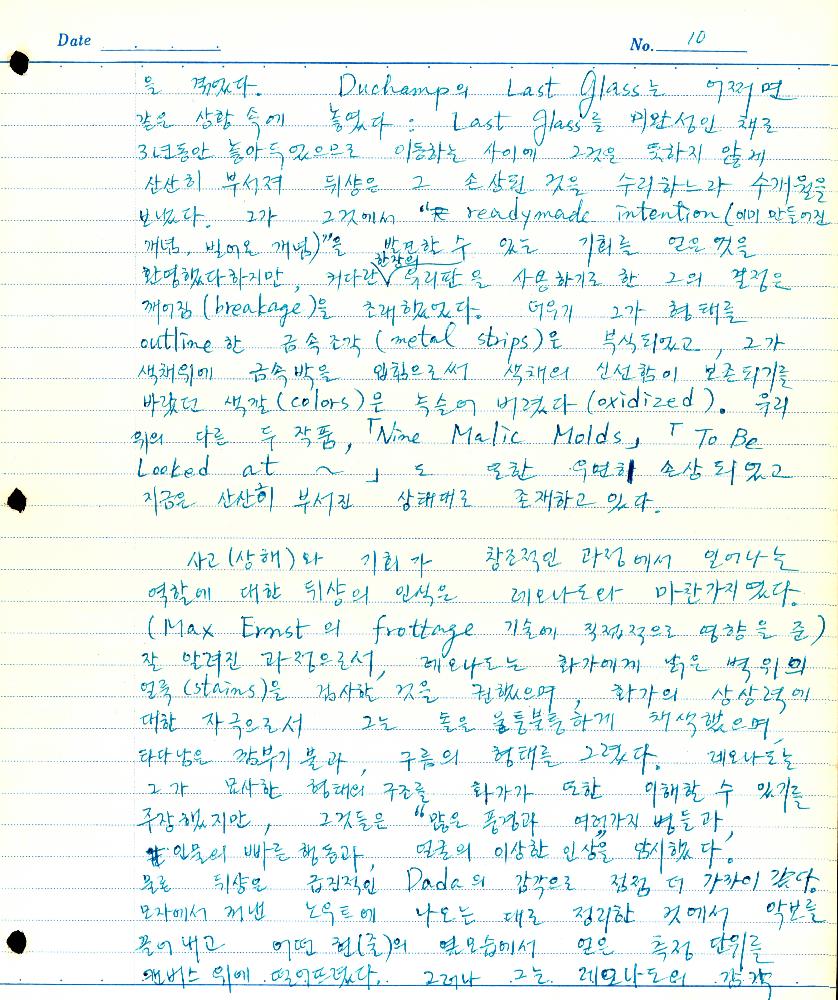 Date . . .
No. 10
을 겪었다. Duchamp의 Last Glass는 어쩌면
같은 상황 속에 놓였다 : Last Glass를 미완성인 채로
3년동안 놓아두었으므로 이동하는 사이에 그것은 뜻하지 않게
산산히 부서져 뒤샹은 그 손상된 것을 수리하느라 수개월을
보냈다. 그가 그것에서 “readymade intention (이미 만들어진
개념, 빌어온 개념)”을 발견할 수 있는 기회를 얻은 것을
환영했다하지만, 커다란 한장의 유리판을 사용하기로 한 그의 결정은
깨어짐 (breakage)을 초래했었다. 더우기 그가 형태를
outline한 금속조각 (metal strips)은 부식되었고, 그가
색채위에 금속박을 입힘으로써 색채의 신선함이 보존되기를
바랐던 색깔 (colors)은 녹슬어 버렸다 (oxidized). 우리
위의 다른 두 작품, 「Nine Malic Molds」 「To Be
Looked at ~ 」도 또한 우연히 손상되었고
지금은 산산히 부서진 상태대로 존재하고 있다.
사고 (상해)와 기회가 창조적인 과정에서 일어나는
역할에 대한 뒤샹의 인식은 레오나도와 마찬가지였다.
(Max Ernst의 frottage 기술에 직접적으로 영향을 준)
잘 알려진 과정으로서, 레오나도는 화가에게 낡은 벽 위의
얼룩 (stains)을 검사할 것을 권했으며, 화가의 상상력에
대한 자극으로서 그는 돌을 울퉁불퉁하게 채색했으며,
타다남은 깜부기 불과, 구름의 형태를 그렸다. 레오나도는
그가 묘사한 형태의 구조를 화가가 또한 이해할 수 있기를
주장했지만, 그것들은 “많은 풍경과 여러가지 병들과,
인물의 빠른 행동과, 얼굴의 이상한 인상을 암시했다”.
물론 뒤샹은 급진적인 Dada의 감각으로 점점 더 가까이 갔다.
모자에서 꺼낸 노우트에 나오는 대로 정리한 것에서 악보를
끌어내고 어떤 현(줄)의 옆모습에서 얻은 측정 단위를
캔버스 위에 떨어뜨렸다. 그러나 그는 레오나도의 감각